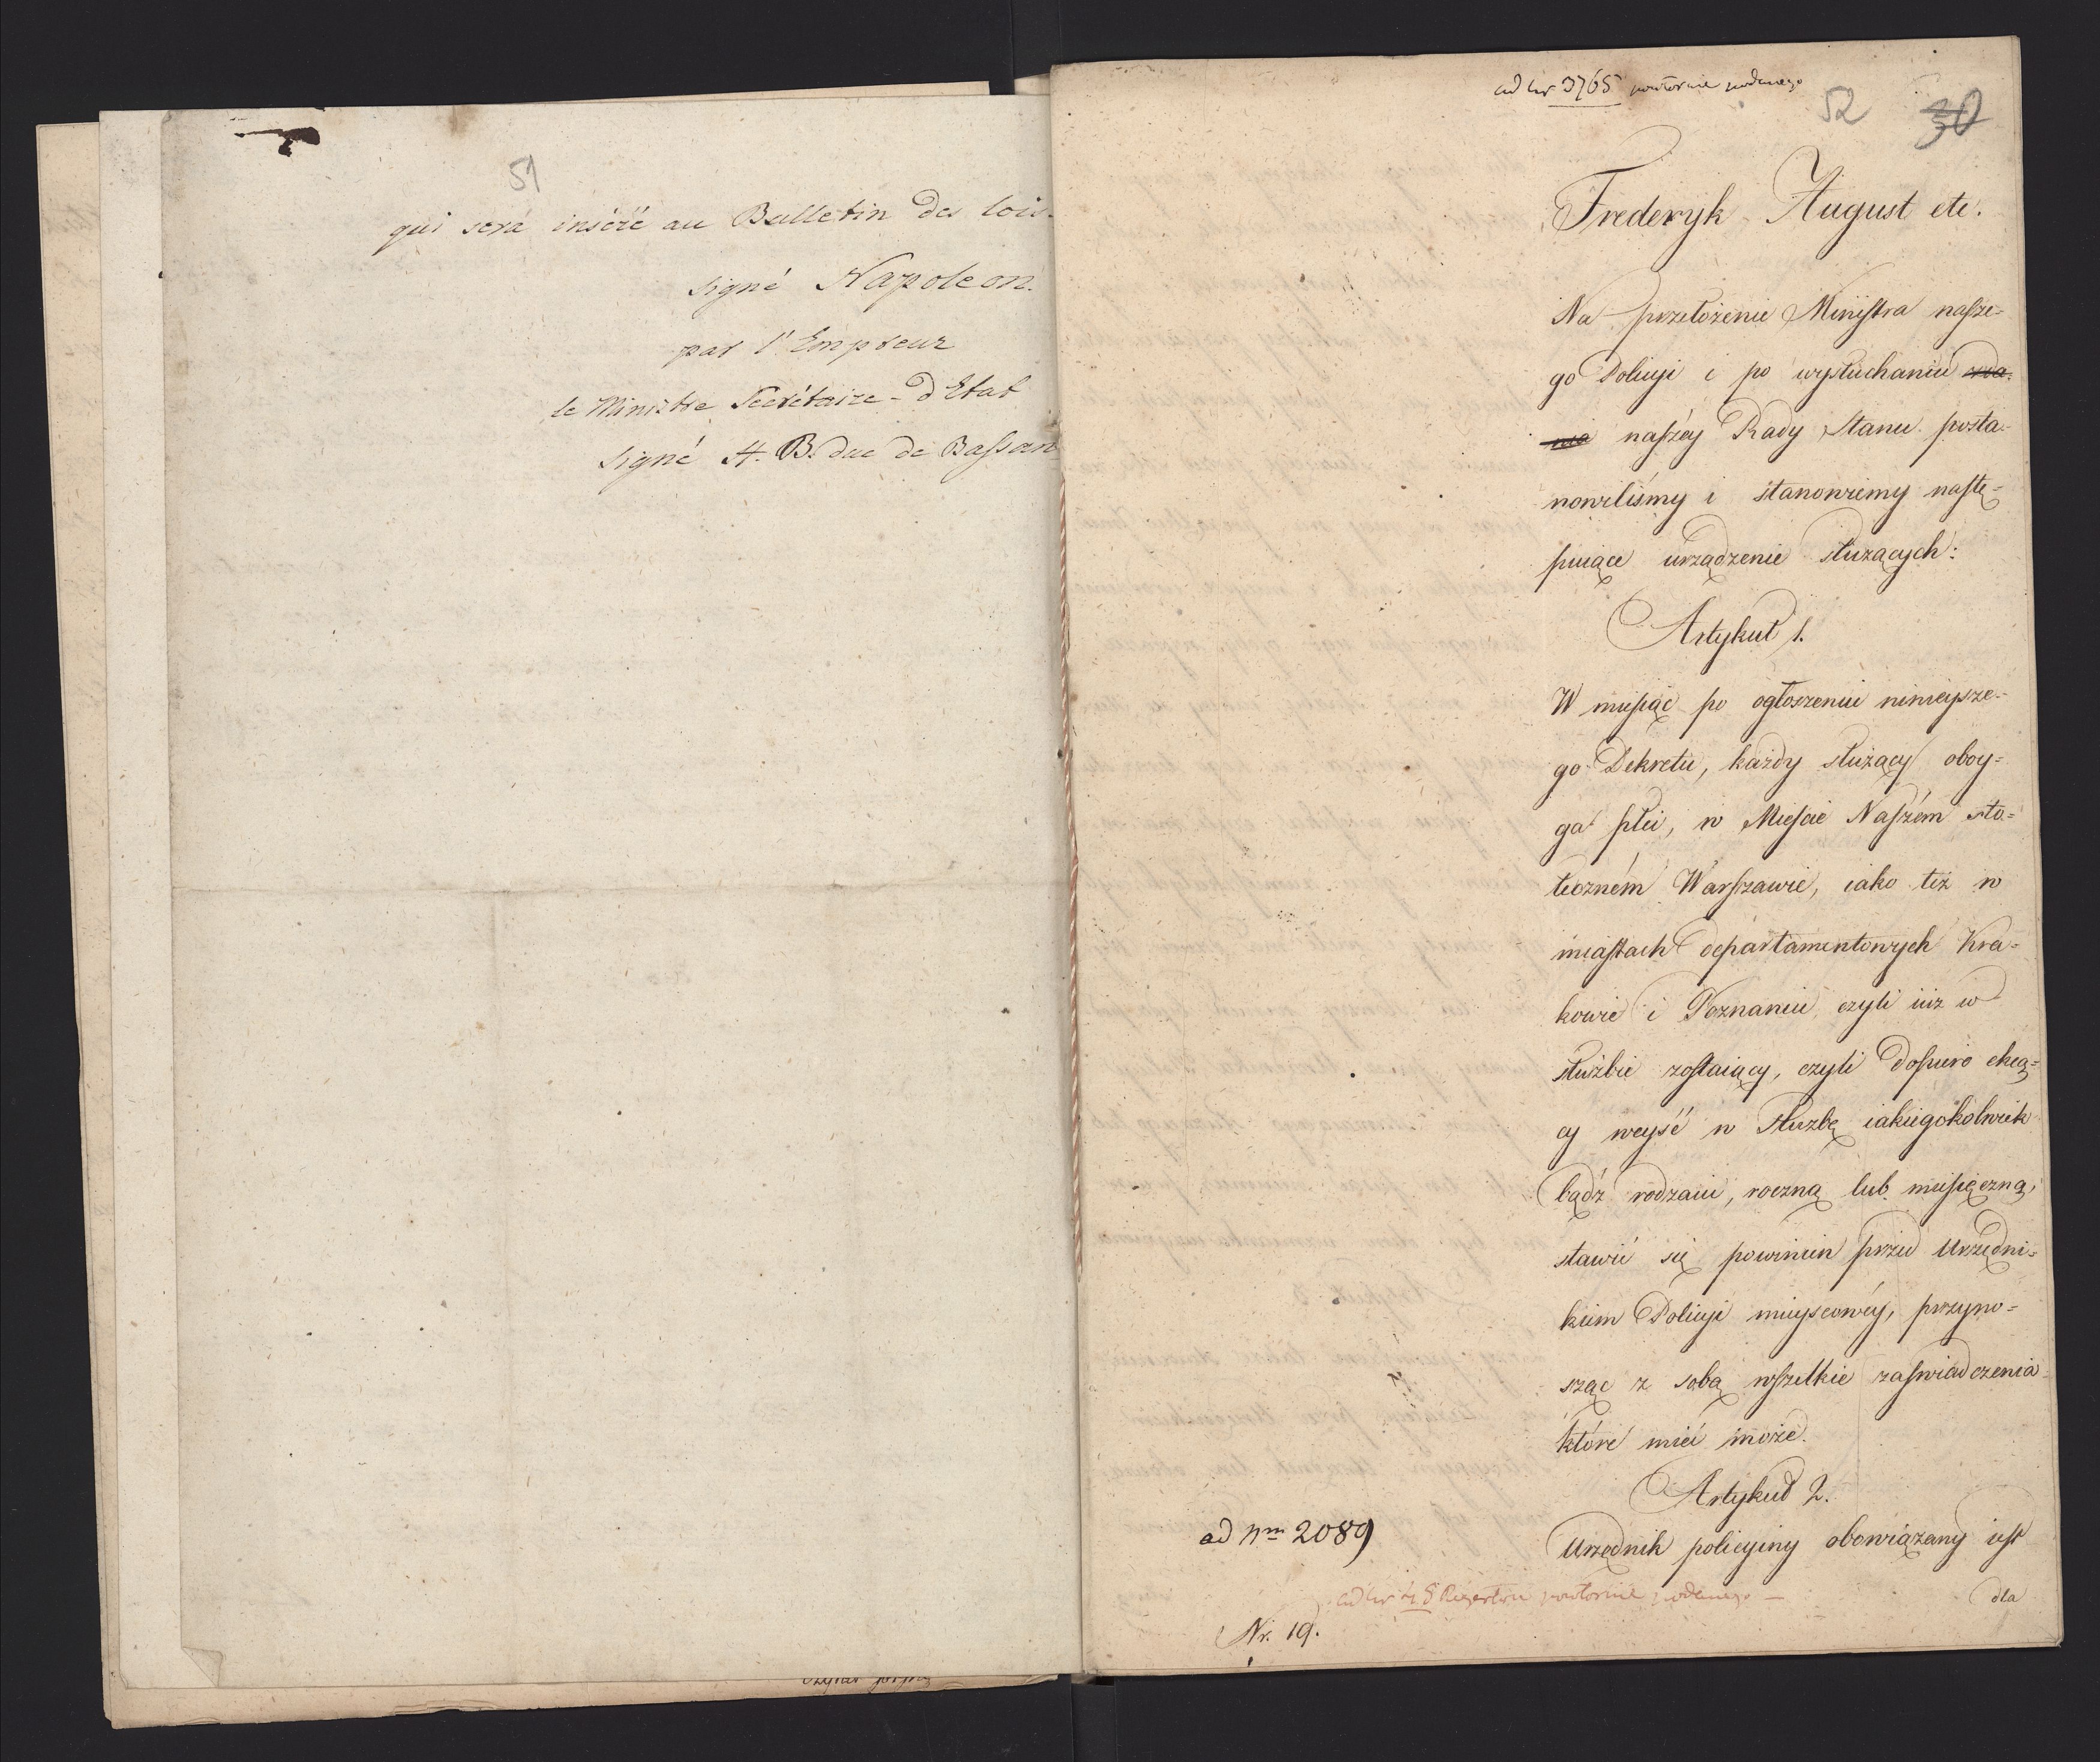 51
qui sera inséré au Bulletin des lois.
signé Napoleon.
par l'Empreur
le Ministre Secrétaire-d'Etat
signé H. B. duc de Bassan
ad Nr 3765 powtornie podanego
52 30
Frederyk August etc.
Na przełożenie Ministra nasze-
go Policyi i po wysłuchaniu
naszéy Rady Stanu posta-
nowiliśmy i stanowiemy nastę-
puiące urządzenie służących:
Artykuł 1.
W miesiąc po ogłoszeniu ninieysze-
go Dekretu, każdy służący oboy-
ga płci, w Mieście Naszém sto-
łeczném Warszawie, iako też w
miastach departamentowych Kra-
kowie i Poznaniu, czyli iuż w
służbie zostaiący, czyli dopiero chcą-
cy weyść w służbę iakiegokolwiek
bądź rodzaiu, roczną lub miesięczną,
stawić się powinien przed Urzędni-
kiem Policyi mieyscowéy, przyno-
sząc z sobą wszelkie zaświadczenia
które mieć może.
Artykuł 2.
Urzędnik policyiny obowiązany iest
dla
ad Nm 2089
ad Nr 45 powtornie podanego —
Nr. 19.